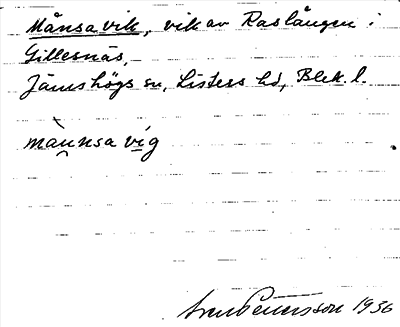 Månsa vik, vik av Raslången i
Gillesnäs,
Jämshögs sn, Listers hd, Blek. l.
mànnsa vig
Sven Petersson 1936